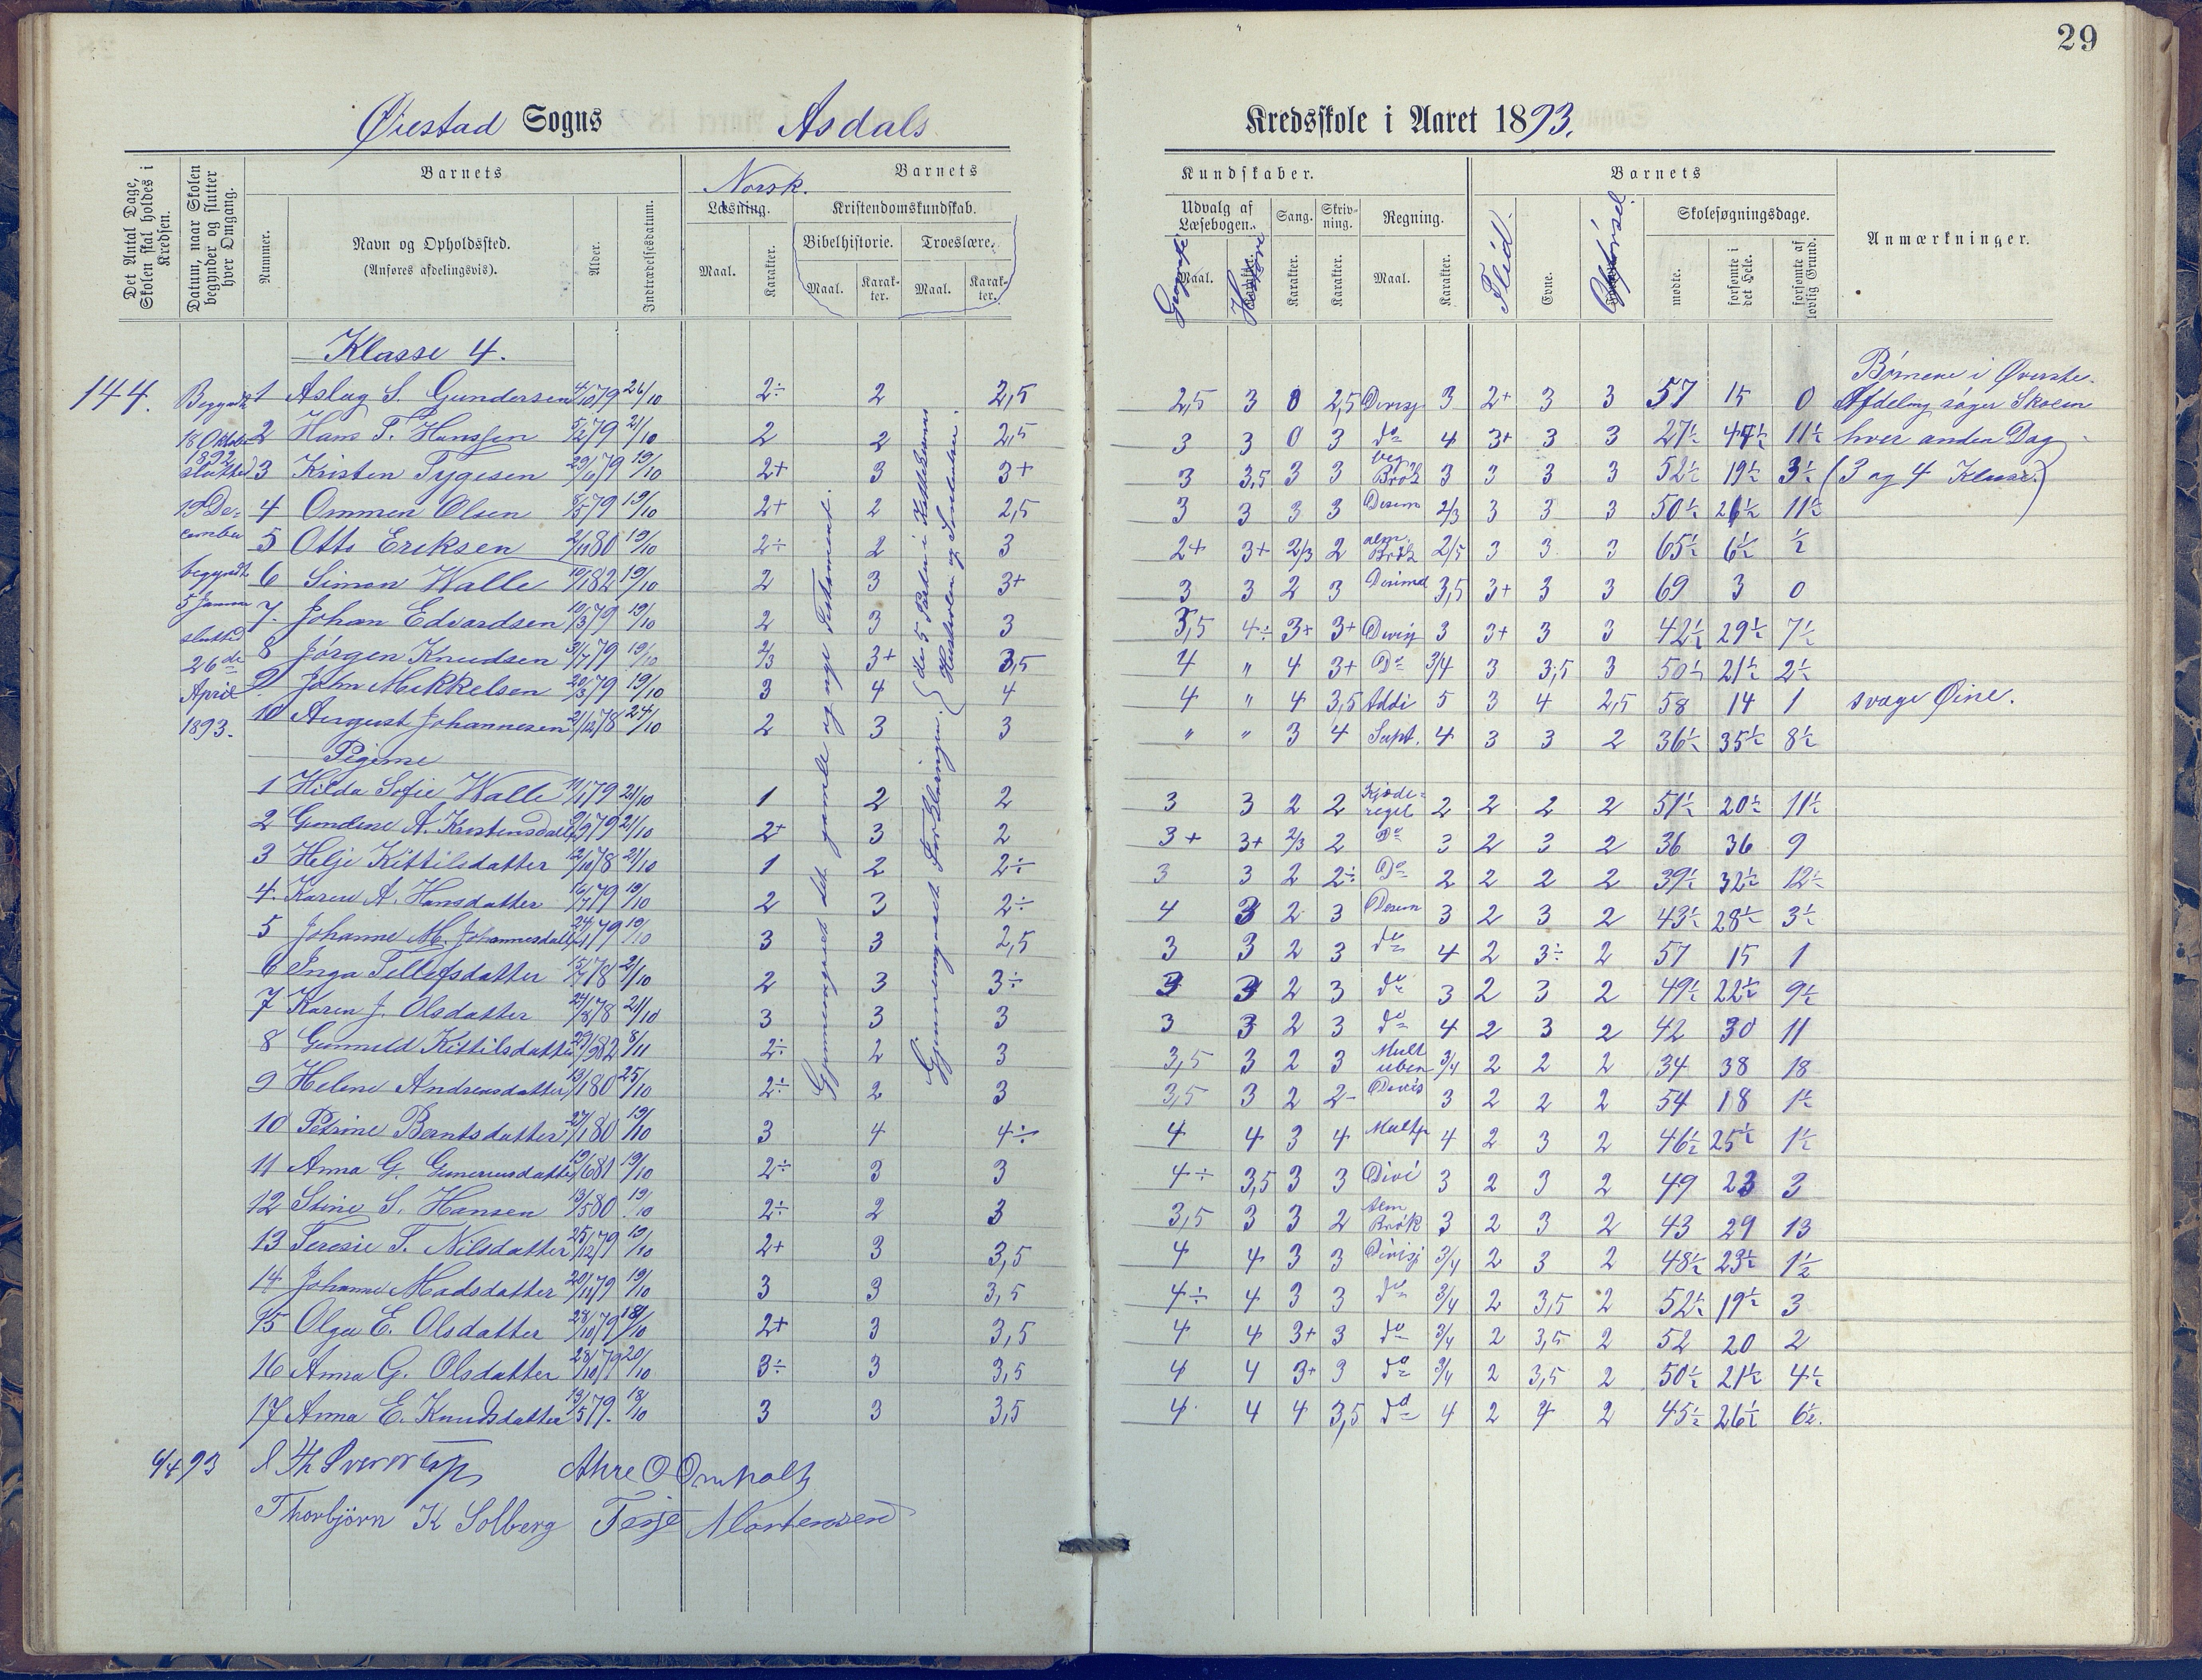 29
Øiestad Sogns Asdals Kredsskole i Aaret 1893.
Det Antal Dage, Skolen skal holdes i Kredsen.
Datum, naar Skolen begynder og slutter hver Omgang.
Barnets
Nummer.
Navn og Opholdssted.
(Anføres afdelingsvis).
Alder.
Indtrædelsesdatum.
Norsk.
Barnets
Læsning.
Kristendomskundskab.
Bibelhistorie. Troeslære.
Maal. Karakter. Maal. Karakter. Maal. Karakter.
Kundskaber.
Udvalg af Læsebogen. Sang. Skrivning. Regning.
Maal. Karakter. Karakter. Karakter. Maal. Karakter.
Barnets
Flid. Evne. Opførsel
Skolesøgningsdage.
mødte. forsømte i det Hele. forsømte af lovlig Grund.
Anmærkninger.
Klasse 4.
144.
Begyndt
18 Oktober
1892
slutted
19 De-
cember
begyndt
5 Januar
slutted
26de
April
1893.
1 Aslag S. Gundersen 4/10 79 26/10 2÷ 2 2,5 2,5 3 0 2,5 Divisj 3 2+ 3 3 57 15 0
2 Hans T. Hansen 5/2 79 21/10 2 2 2,5 3 3 0 3 do 4 3+ 3 3 27½ 44½ 11½
3 Kristen Tygesen 29/10 79 19/10 2+ 3 3+ 3 3,5 3 3 Brøk 3 3 3 3 52½ 19½ 3½
4 Ommen Olsen 8/5 79 19/10 2+ 2 2,5 3 3 3 3 Desim 2/3 3 3 3 50½ 21½ 11½
5 Otto Eriksen 2/11 80 19/10 2÷ 2 3 2+ 3+ 2/3 2 alm. Brøk 2/5 3 3 3 65½ 6½ ½
6 Simon Walle 10/1 82 19/10 2 3 3+ 3 3 2 3 Desimal 3,5 3+ 3 3 69 3 0
7. Johan Edvardsen 10/3 79 19/10 2 3 3 3,5 4÷ 3+ 3+ Divisj 3 3+ 3 3 42½ 29½ 7½
8 Jørgen Knudsen 31/7 79 19/10 2/3 3+ 3,5 4 " 4 3+ Do 3/4 3 3,5 3 50½ 21½ 2½
9 John Mikkelsen 20/3 79 19/10 3 4 4 4 " 4 3,5 Addi 5 3 4 2,5 58 14 1 svage Øine.
10 August Johannesen 21/12 78 24/10 2 3 3 " " 3 4 Supt. 4 3 3 2 36½ 35½ 8½
Børnene i Øverste
Afdeling søger Skolen
hver anden Dag
(3 og 4 Klasse.)
Gjennemgaaet det gamle og nye Testament.
Gjennemgaaet Forklaringen. (de 5 Parter i Katekismen
Hustavlen og Skriftemaal.
Pigerne
1 Hilda Sofie Walle 11/1 79 21/10 1 2 2 3 3 2 2 Kjæde-regel 2 2 2 2 51½ 20½ 11½
2 Gundine A. Kristensdatter 9/9 79 21/10 2+ 3 2 3+ 3+ 2/3 2 Do 3 2 3 2 36 36 9
3 Helje Kittilsdatter 12/10 78 21/10 1 2 2÷ 3 3 2 2÷ Do 2 2 2 2 39½ 32½ 12½
4. Karen A. Hansdatter 16/7 79 19/10 2 3 2÷ 4 3 2 3 Desim 3 2 3 2 43½ 28½ 3½
5 Johanne M. Johannesdatter 24/4 79 19/10 3 3 2,5 3 3 2 3 do 4 2 3÷ 2 57 15 1
6 Inga Tellefsdatter 15/7 78 21/10 2 3 3÷ 3 3 2 3 do 3 2 3 2 49½ 22½ 9½
7 Karen J. Olsdatter 24/8 78 21/10 3 3 3 3 3 2 3 do 4 2 3 2 42 30 11
8 Gunnuld Kittilsdatter 29/9 82 8/11 2÷ 2 3 3,5 3 2 3 Mult uben 3/4 2 2 2 34 38 18
9 Helene Andreasdatter 13/1 80 25/10 2÷ 2 3 3,5 3 2 2- Divis 3 2 2 2 54 18 1½
10 Petrine Berntsdatter 27/1 80 19/10 3 4 4÷ 4 4 3 4 Multp 4 2 3 2 46½ 25½ 1½
11 Anna G. Gunereusdatter 19/6 81 19/10 2÷ 3 3 4÷ 3,5 3 3 Divi 3 2 3 2 49 23 3
12 Stine S. Hansen 13/5 80 19/10 2÷ 2 3 3,5 3 3 2 Alm Brøk 3 2 3 2 43 29 13
13 Teresie T. Nilsdatter 25/12 79 19/10 2+ 3 3,5 4 4 3 3 Divisj 3/4 2 3 2 48½ 23½ 1½
14 Johanne Madsdatter 20/11 79 19/10 3 3 3,5 4÷ 4 3 3 do 3/4 2 3,5 2 52½ 19½ 3
15 Olga E. Olsdatter 28/10 79 18/10 2+ 3 3,5 4 4 3+ 3 do 3/4 2 3,5 2 52 20 2
16 Anna G. Olsdatter 28/10 79 20/10 3÷ 3 3,5 4 4 3+ 3 do 3/4 2 3,5 2 50½ 21½ 4½
17 Anna E. Knudsdatter 13/5 79. 18/10 3 3 3,5 4 4 4 3,5 do 4 2 4 2 45½ 26½ 6½.
6/4 93 Sverdrup Akre O Omholt
Thorbjørn K Solberg Terje Mortensen